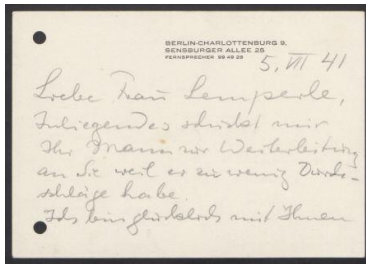 BERLIN-CHARLOTTENBURG 9,
SENSBURGER ALLEE 25
FERNSPRECHER 99 49 29
5, VII 41
Liebe Frau Lemperle,
Inliegendes schickt mir
Ihr Mann zur Weiterleitung
an Sie weil er zu wenig Durch-
schläge habe.
Ich bin glücklich mit Ihnen